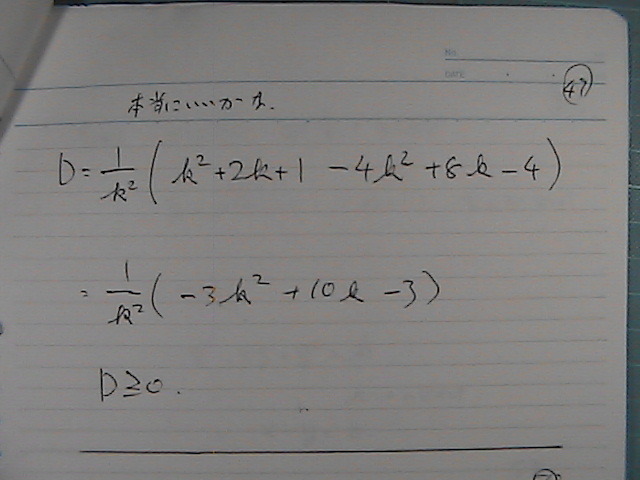 No.
DATE
47
本当にいいかーな.
D = \frac{1}{k^2} ( k^2 + 2k + 1 - 4k^2 + 8k - 4 )
= \frac{1}{k^2} ( -3k^2 + 10k - 3 )
D ≧ 0.